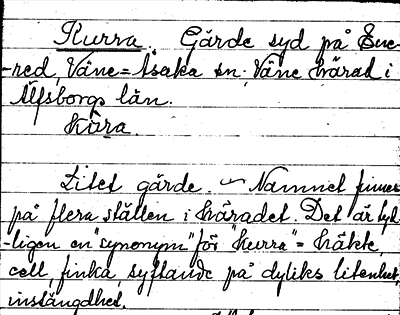 Kurra. Gärde syd på Ene-
-red, Väne=Åsaka sn. Väne härad i
Älfsborgs län.
Kùra.
Litet gärde. — Namnet finnes
på flera ställen i häradet. Det är tyd-
-ligen en "synonym" för "kurra" = häkte,
cell, finka, syftande på dyliks litenhet,
instängdhet.